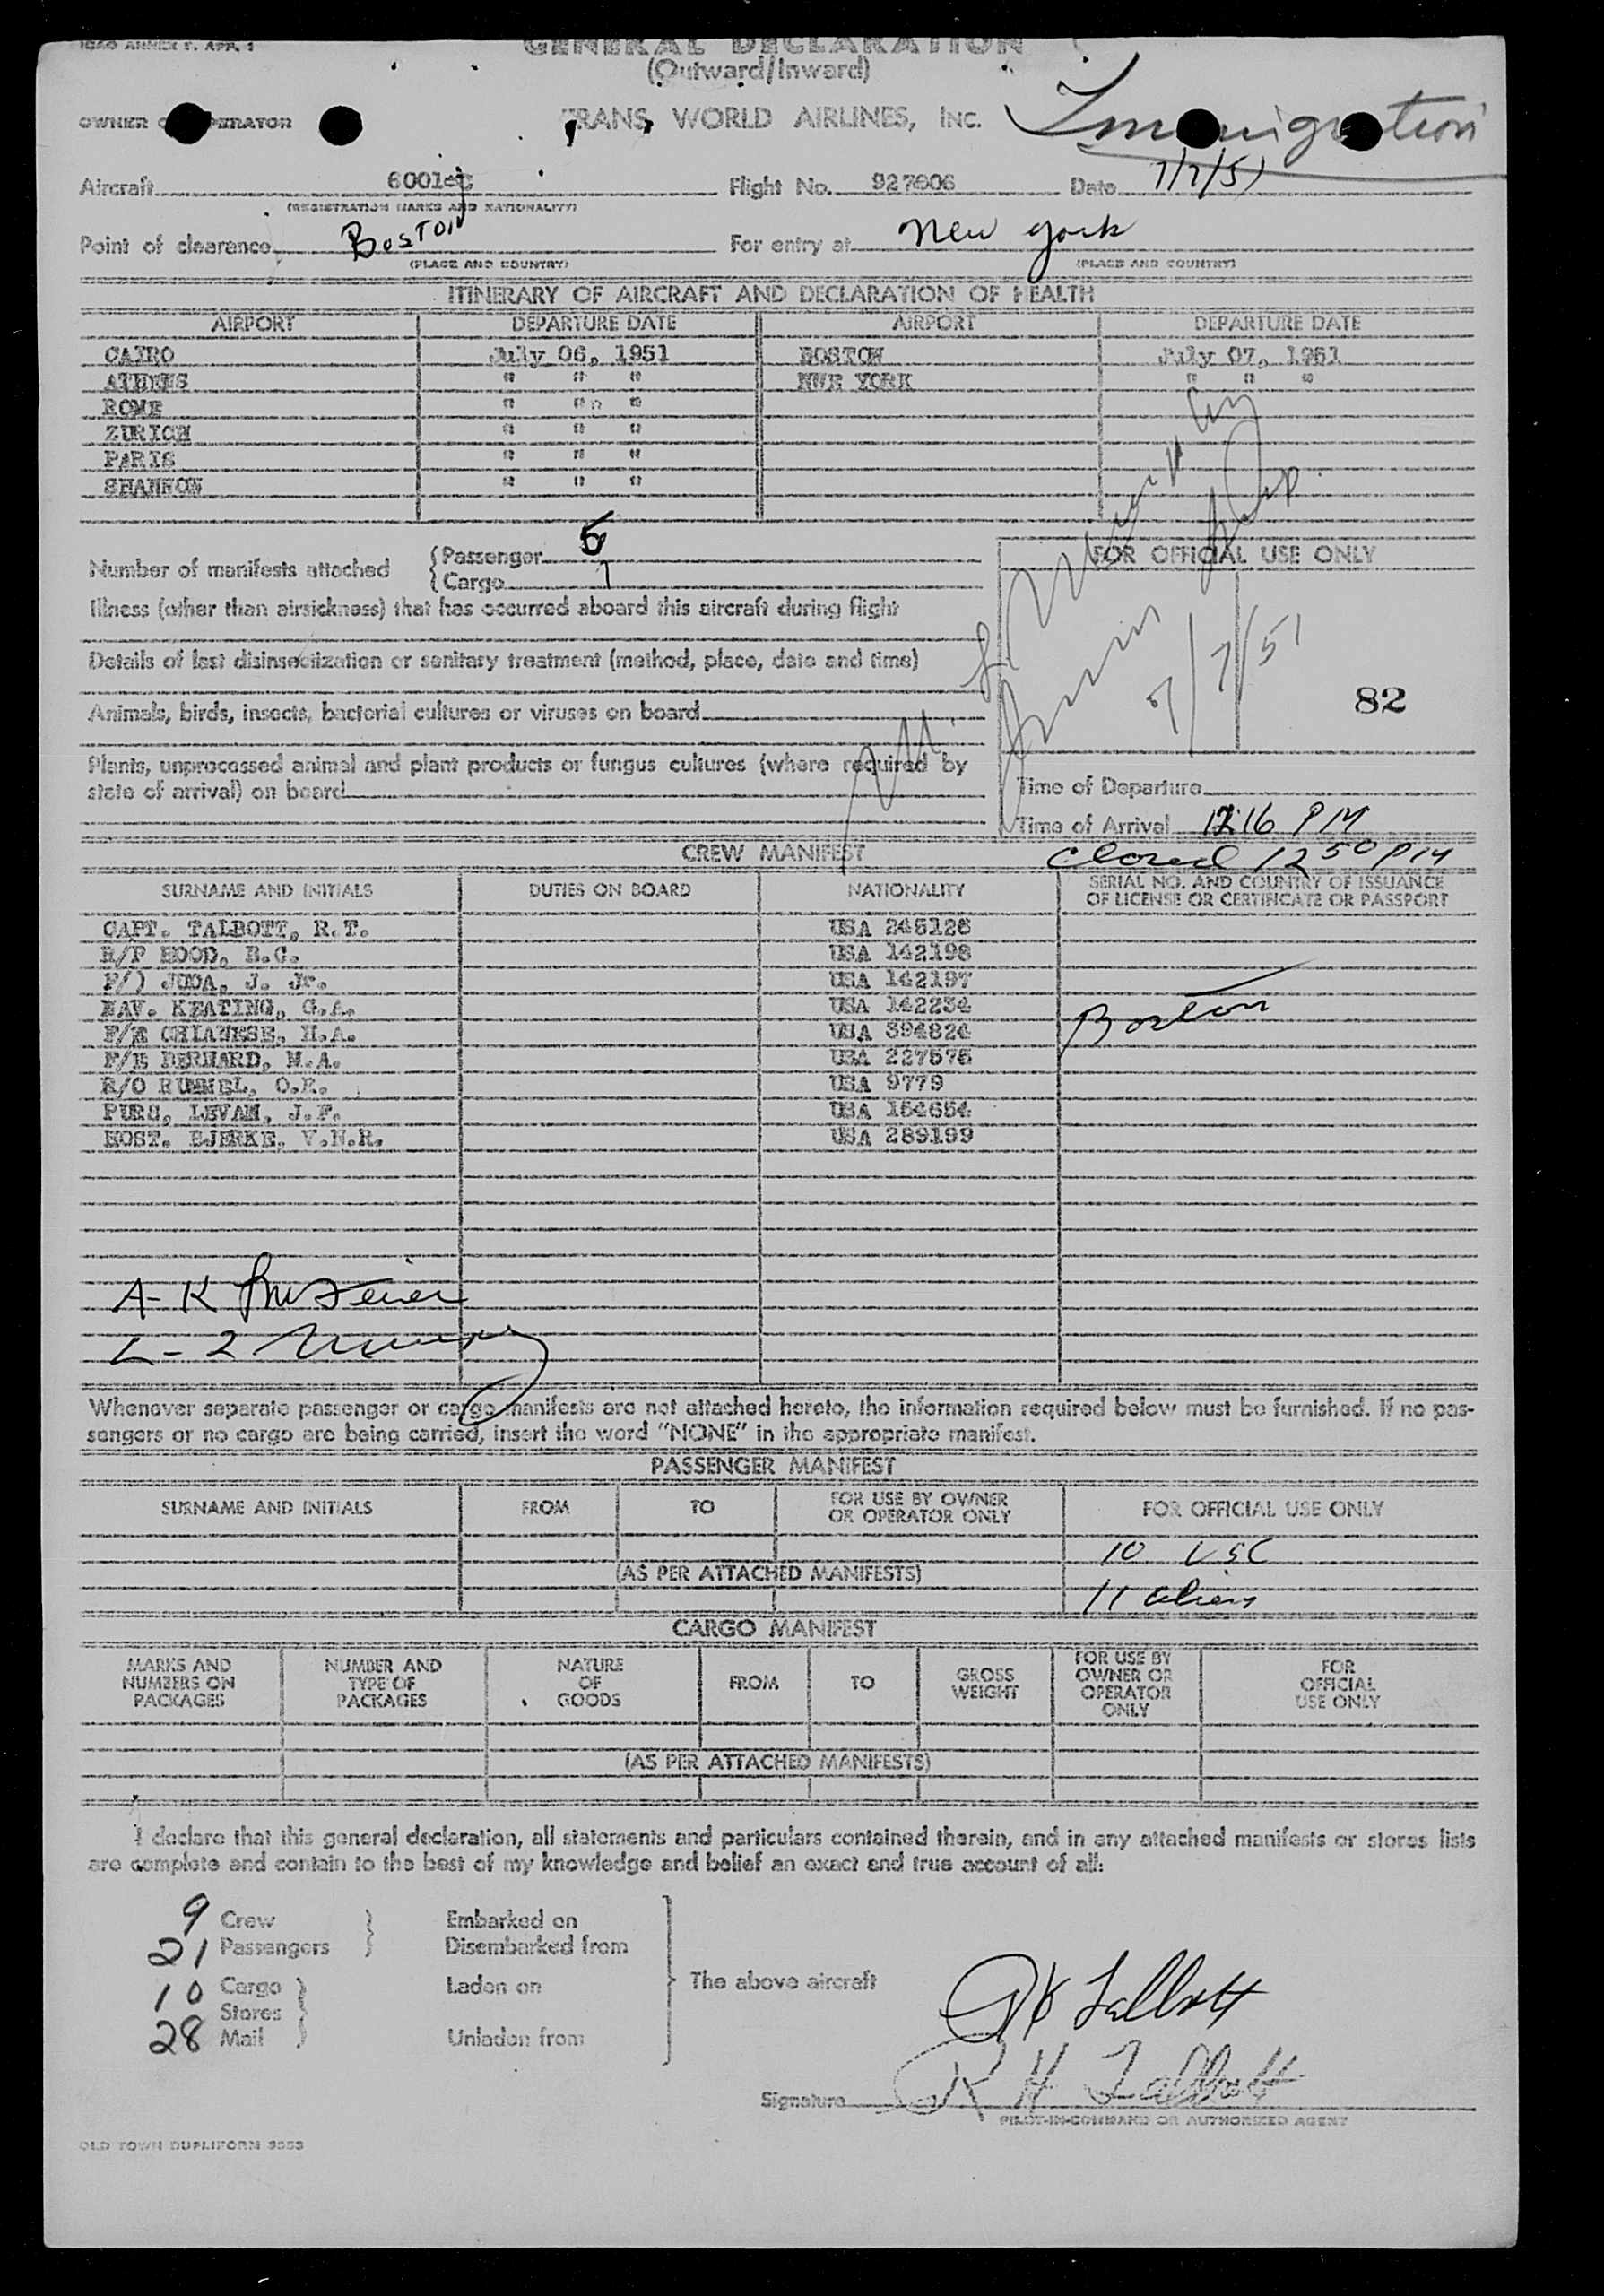 ICAO ANNEX 9, APP. 1
GENERAL DECLARATION
(Outward/Inward)
OWNER OR OPERATOR TRANS WORLD AIRLINES, Inc. Immigration
Aircraft 6001 Flight No. 927606 Date 7/7/51
(REGISTRATION MARKS AND NATIONALITY)
Point of clearance BOSTON For entry at New York
(PLACE AND COUNTRY) (PLACE AND COUNTRY)
ITINERARY OF AIRCRAFT AND DECLARATION OF HEALTH
AIRPORT DEPARTURE DATE AIRPORT DEPARTURE DATE
CAIRO July 06, 1951 BOSTON July 07, 1951
ATHENS " " " NWR YORK " " "
ROME " " "
ZURICH " " "
PARIS " " "
SHANNON " " "
Number of manifests attached { Passenger 5
{ Cargo 1
FOR OFFICIAL USE ONLY
Illness (other than airsickness) that has occurred aboard this aircraft during flight
Details of last disinsectization or sanitary treatment (method, place, date and time)
7/7/51
82
Animals, birds, insects, bacterial cultures or viruses on board
Plants, unprocessed animal and plant products or fungus cultures (where required by
state of arrival) on board
Time of Departure
Time of Arrival 1216 PM
closed 12 50 PM
CREW MANIFEST
SURNAME AND INITIALS DUTIES ON BOARD NATIONALITY SERIAL NO. AND COUNTRY OF ISSUANCE
OF LICENSE OR CERTIFICATE OR PASSPORT
CAPT. TALBOTT, R.T. USA 245126
HOOD, USA 142198
JUDA, J. Jr. USA 142197
NAV. KEATING, G.A. USA 142234 Boston
F/E CHIANESE, H.A. USA 394824
F/E BERNARD, M.A. USA 227575
R/O USA 9779
PURS, LEVAN, J.F. USA 154654
HOST. BJERKE, V.N.R. USA 289199
A-K
L-Z
Whenever separate passenger or cargo manifests are not attached hereto, the information required below must be furnished. If no pas-
sengers or no cargo are being carried, insert the word "NONE" in the appropriate manifest.
PASSENGER MANIFEST
SURNAME AND INITIALS FROM TO FOR USE BY OWNER
OR OPERATOR ONLY FOR OFFICIAL USE ONLY
10 USC
(AS PER ATTACHED MANIFESTS)
11 aliens
CARGO MANIFEST
MARKS AND
NUMBERS ON
PACKAGES
NUMBER AND
TYPE OF
PACKAGES
NATURE
OF
GOODS
FROM
TO
GROSS
WEIGHT
FOR USE BY
OWNER OR
OPERATOR
ONLY
FOR
OFFICIAL
USE ONLY
(AS PER ATTACHED MANIFESTS)
I declare that this general declaration, all statements and particulars contained therein, and in any attached manifests or stores lists
are complete and contain to the best of my knowledge and belief an exact and true account of all:
9 Crew } Embarked on
21 Passengers } Disembarked from
10 Cargo } Laden on The above aircraft
Stores
28 Mail } Unladen from
R H Talbott
Signature R H Talbott
PILOT-IN-COMMAND OR AUTHORIZED AGENT
OLD TOWN DUPLIFORM 9553